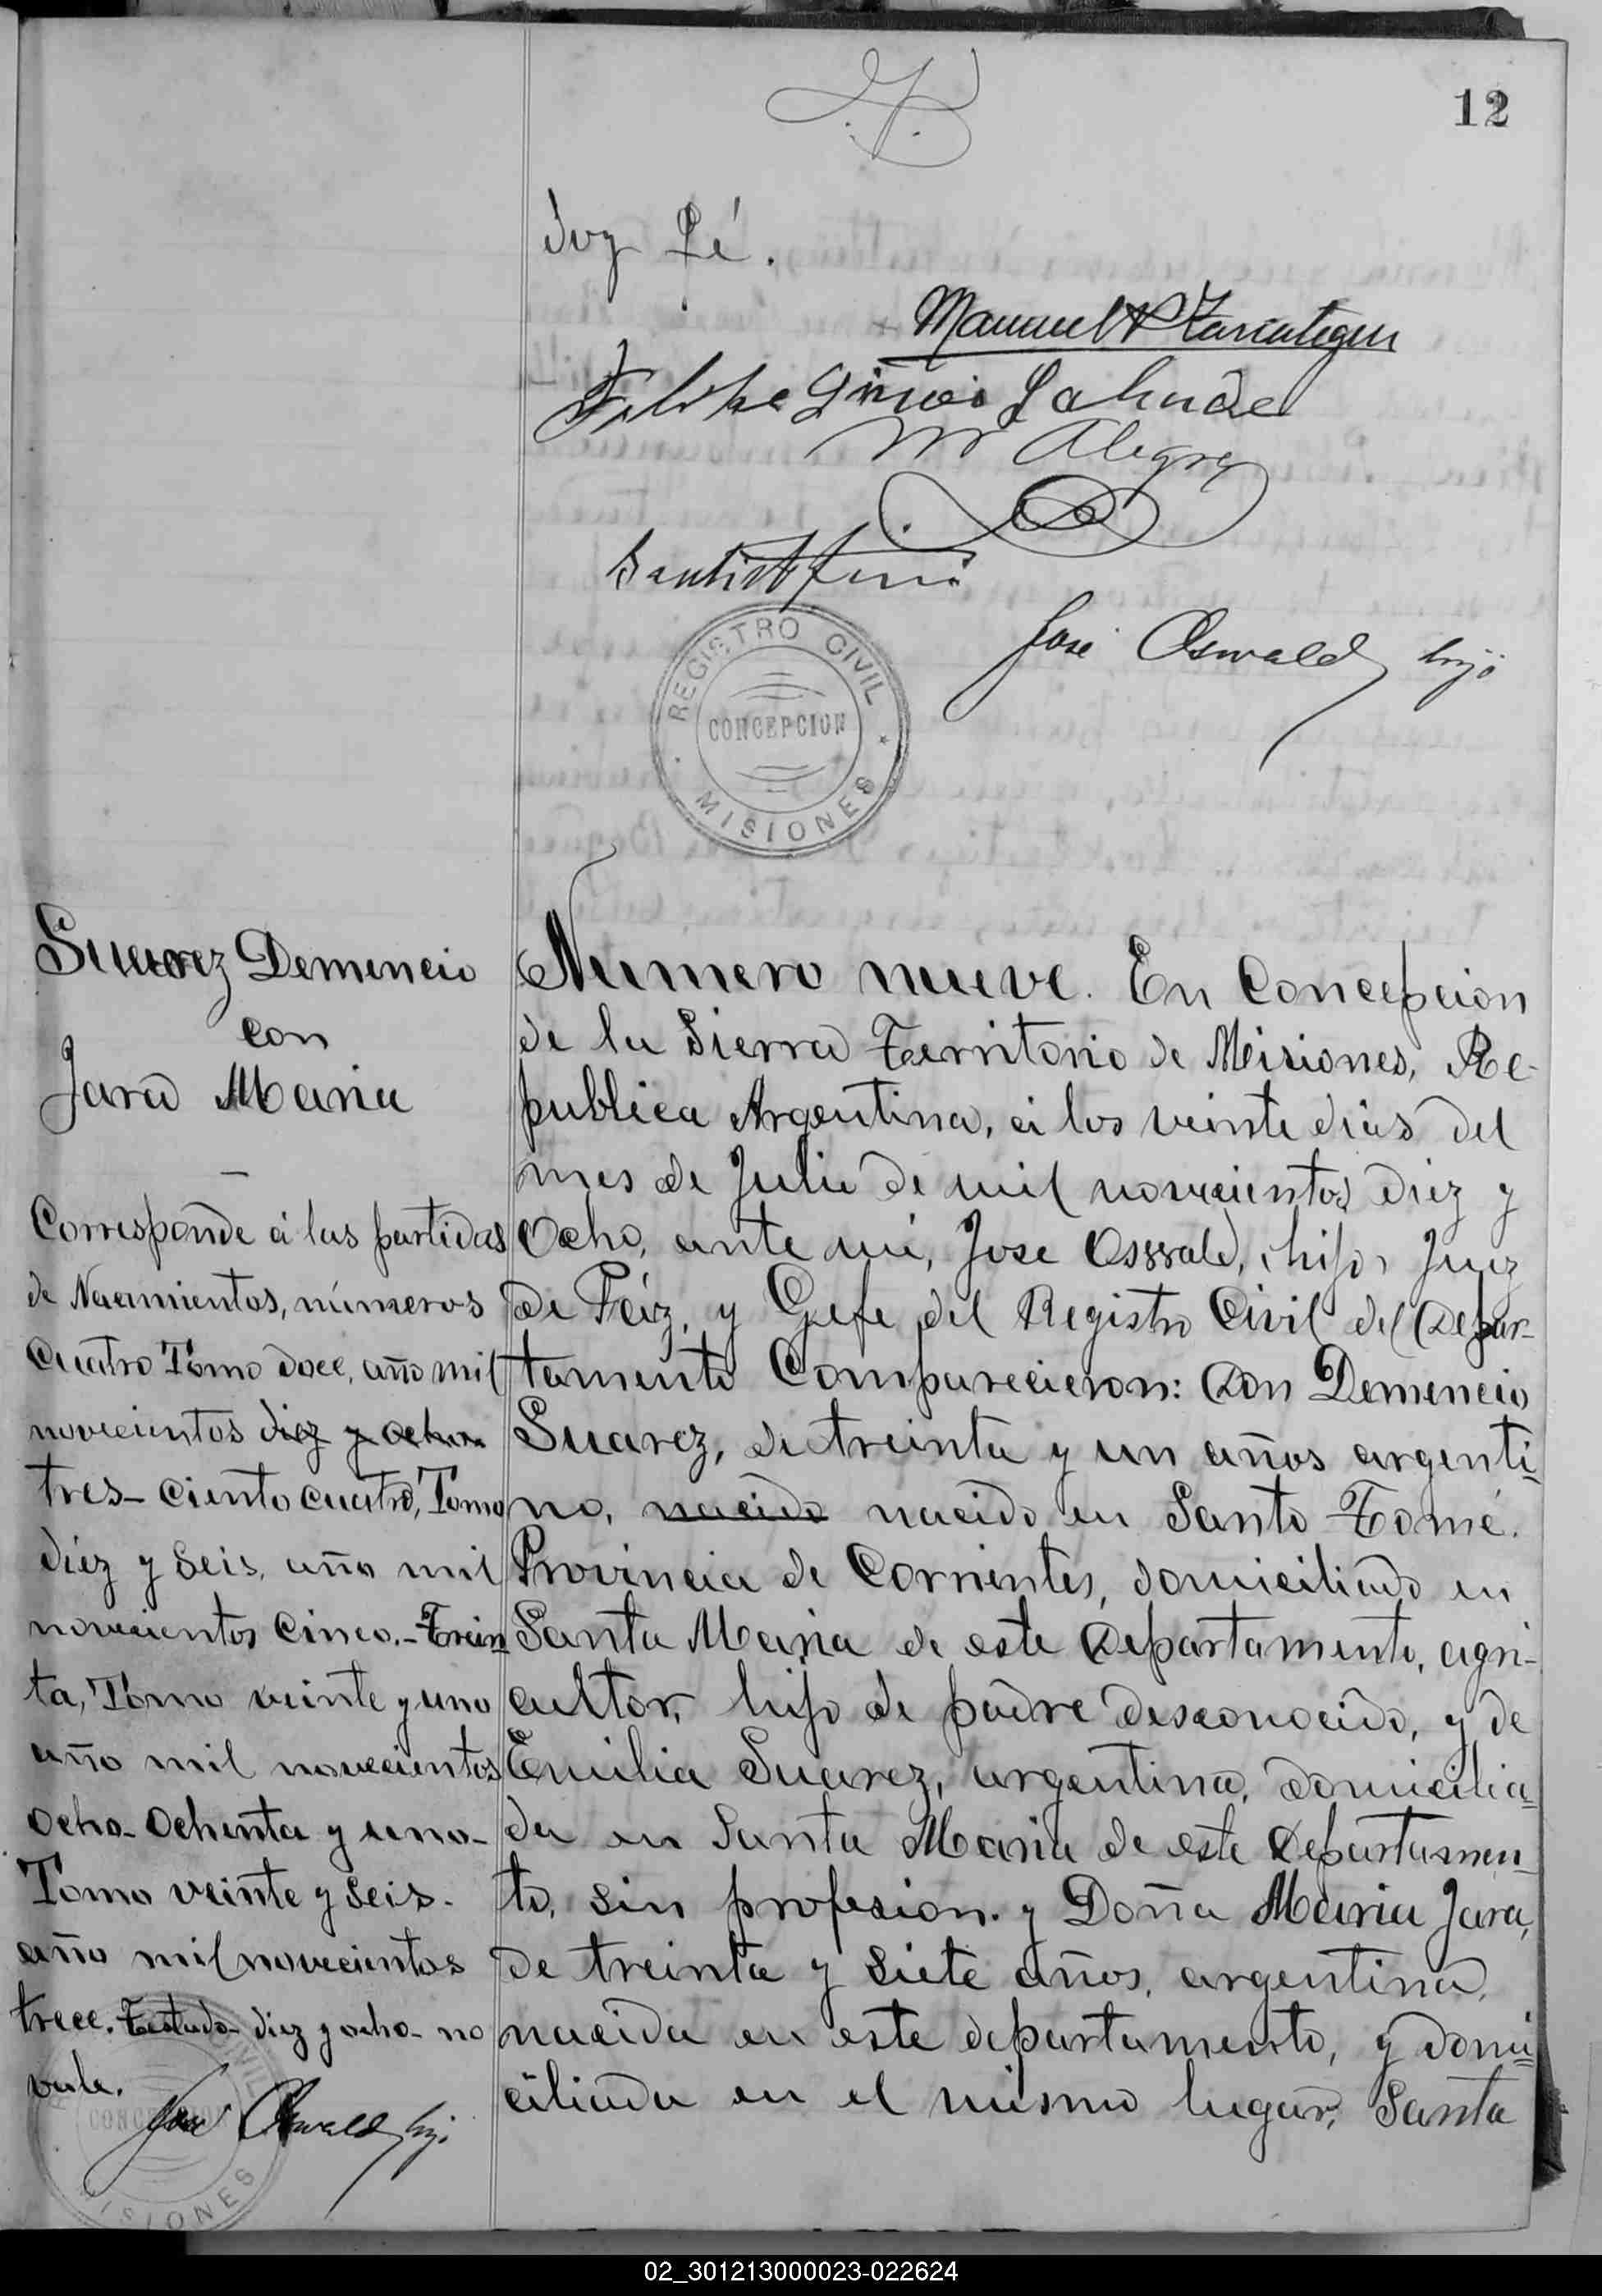 12
doy Fé.
Manuel
Felipe
M Alegre
Bautista
José Oswald hijo
REGISTRO CIVIL
CONCEPCION
MISIONES
Suarez Demencio
con
Jara Maria
Corresponde á las partidas
de Nacimientos, números
Cuatro Tomo doce, año mil
novecientos diez y ocho
tres- Ciento cuatro, Tomo
diez y seis, año mil
novecientos cinco.- Trein
ta, Tomo veinte y uno
año mil novecientos
ocho- Ochenta y uno-
Tomo veinte y seis-
año mil novecientos
trece. Testado- diez y ocho- no
vale.
José Oswald hijo
CIVIL
CONCEPCION
MISIONES
Numero nueve. En Concepcion
de la Sierra Territorio de Misiones, Re-
publica Argentina, á los veinte dias del
mes de Julio de mil novecientos diez y
Ocho, ante mí, Jose Osswald, hijo, Juez
de Páz, y Gefe del Registro Civil del Depar-
tamento Comparecieron: Don Demencio
Suarez, de treinta y un años argenti-
no, nacido nacido en Santo Tomé.
Provincia de Corrientes, domiciliado en
Santa Maria de este Departamento, agri-
cultor, hijo de padre desconocido, y de
Emilia Suarez, argentina, domicilia-
da en Santa Maria de este Departamen-
to, sin profesion. y Doña Maria Jara,
de treinta y siete años, argentina,
nacida en este departamento, y domi-
ciliada en el mismo lugar, Santa
02_301213000023-022624